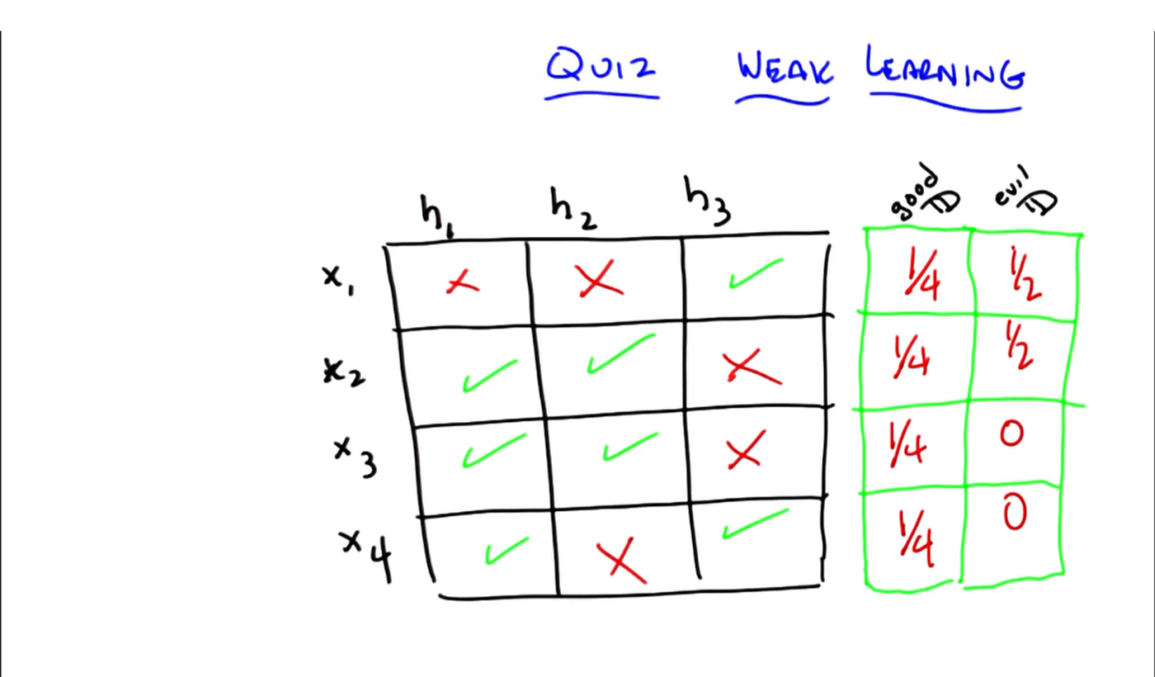 QUIZ WEAK LEARNING
h₁ h₂ h₃ good D evil D
x₁ ✗ ✗ ✓ 1/4 1/2
x₂ ✓ ✓ ✗ 1/4 1/2
x₃ ✓ ✓ ✗ 1/4 0
x₄ ✓ ✗ ✓ 1/4 0